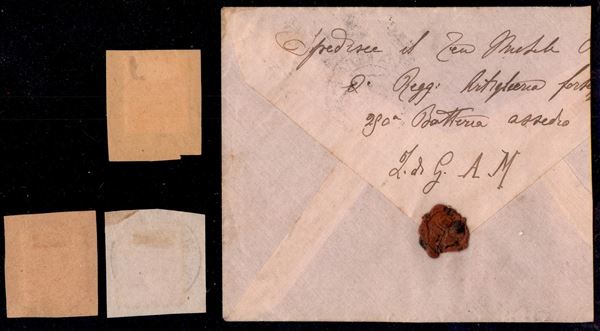 Spedisce il Ten Michele
2° Regg: Artiglieria forte
290ª Batteria assedio
Z. di G. A M